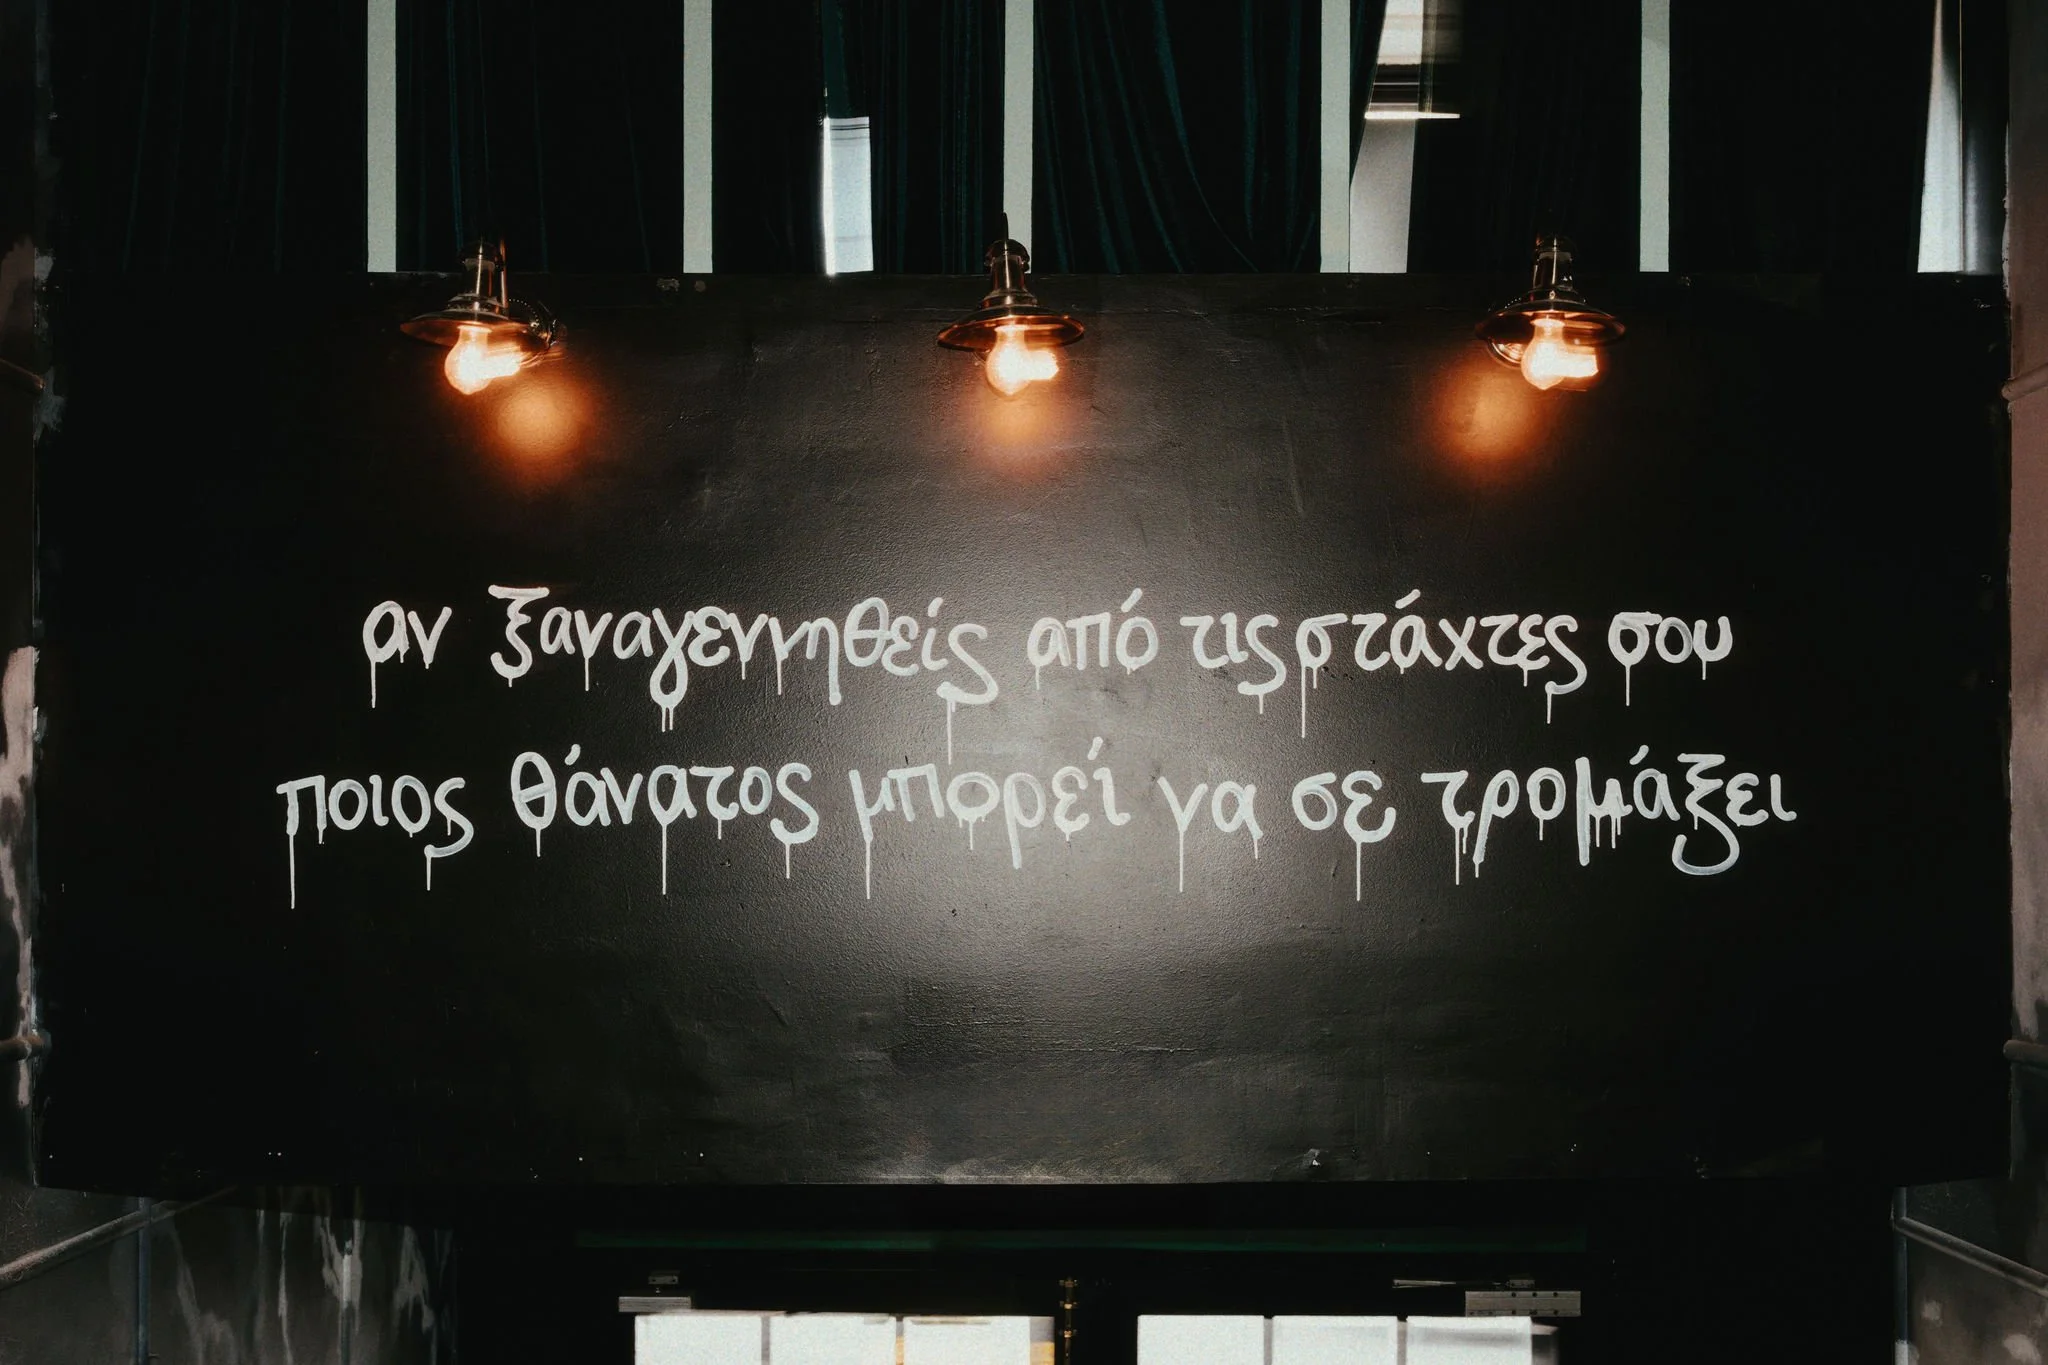 αν ξαναγεννηθείς από τις στάχτες σου
ποιος θάνατος μπορεί να σε τρομάξει